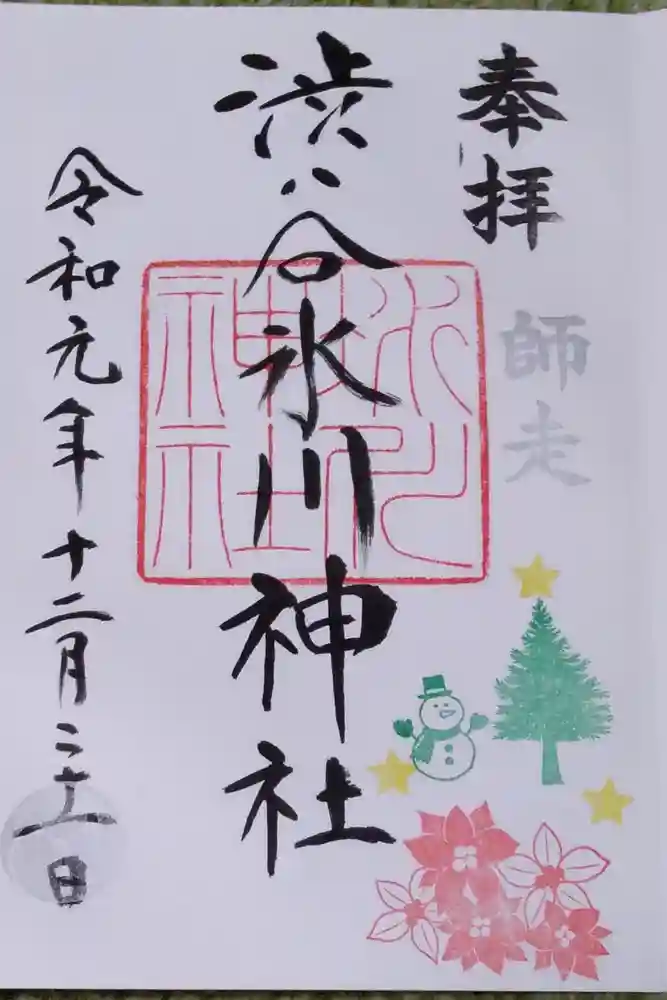 奉拝
師走
渋谷氷川神社
氷川
神社
令和元年十二月二十一日